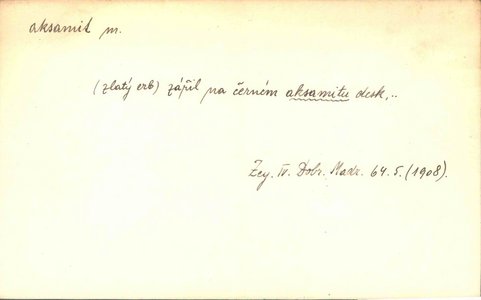 aksamit m.
(zlatý erb) zářil na černém aksamitu desk,..
Zey. IV. Dobr. Madr. 64.5. (1908).